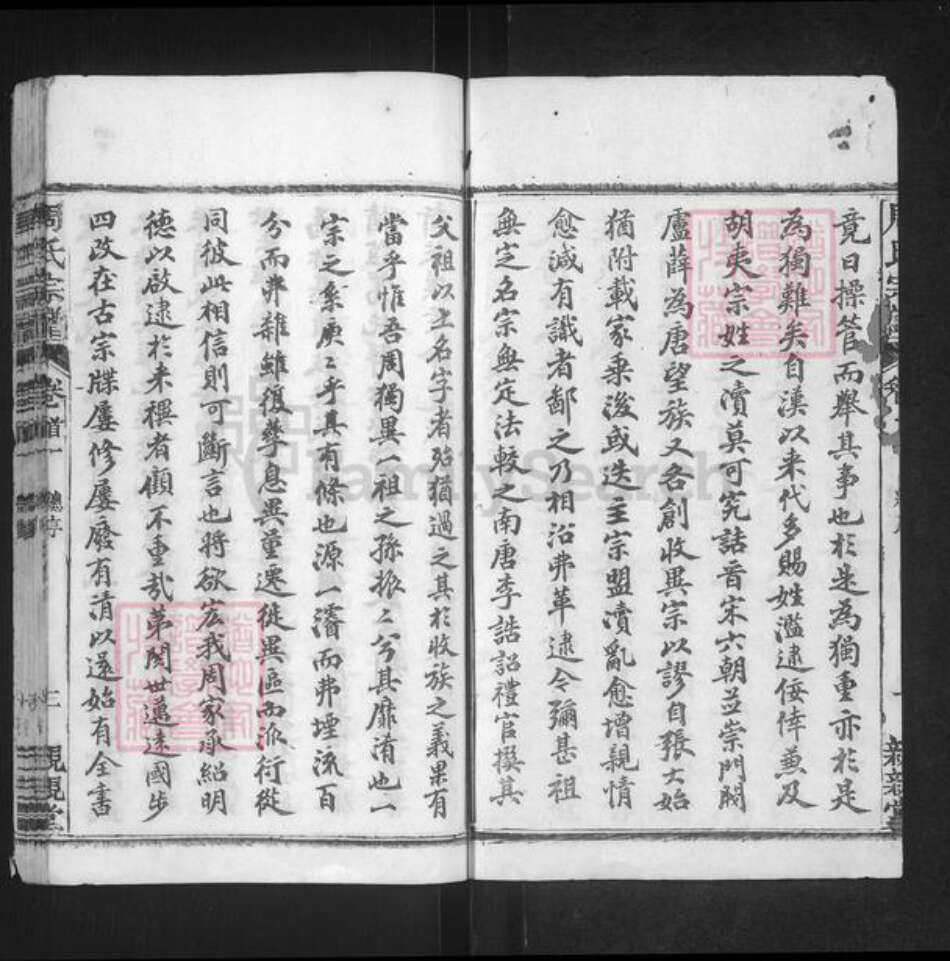 竟日操管而舉其事也於是為獨重亦於是
為獨難矣自漢以来代多賜姓濫逮佞倖兼及
胡夷宗姓之瀆莫可究詰晉宋六朝並崇門閥
盧薛為唐望族又各創收異宗以謬自張大始
猶附載家乘浚或迭主宗盟瀆亂愈增親情
愈減有識者鄙之乃相沿弗革逮今彌甚祖
無定名宗無定法較之南唐李誥詔禮官撰其
父祖以上名字者殆猶過之其於收族之義果有
當乎惟吾周獨異一祖之孫振〻兮其靡淆也一
宗之系庚〻乎其有條也源一濬而弗堙流百
分而弗雜雖復蕃息異量遷徙異區而派衍從
同彼此相信則可斷言也將欲宏我周家承紹明
德以啟逮於来禩者顧不重哉第閱世邁遠國步
四改在古宗牒屢修屢廢有清以還始有全書
周氏宗譜
卷首一
總序
三
親親堂
FamilySearch